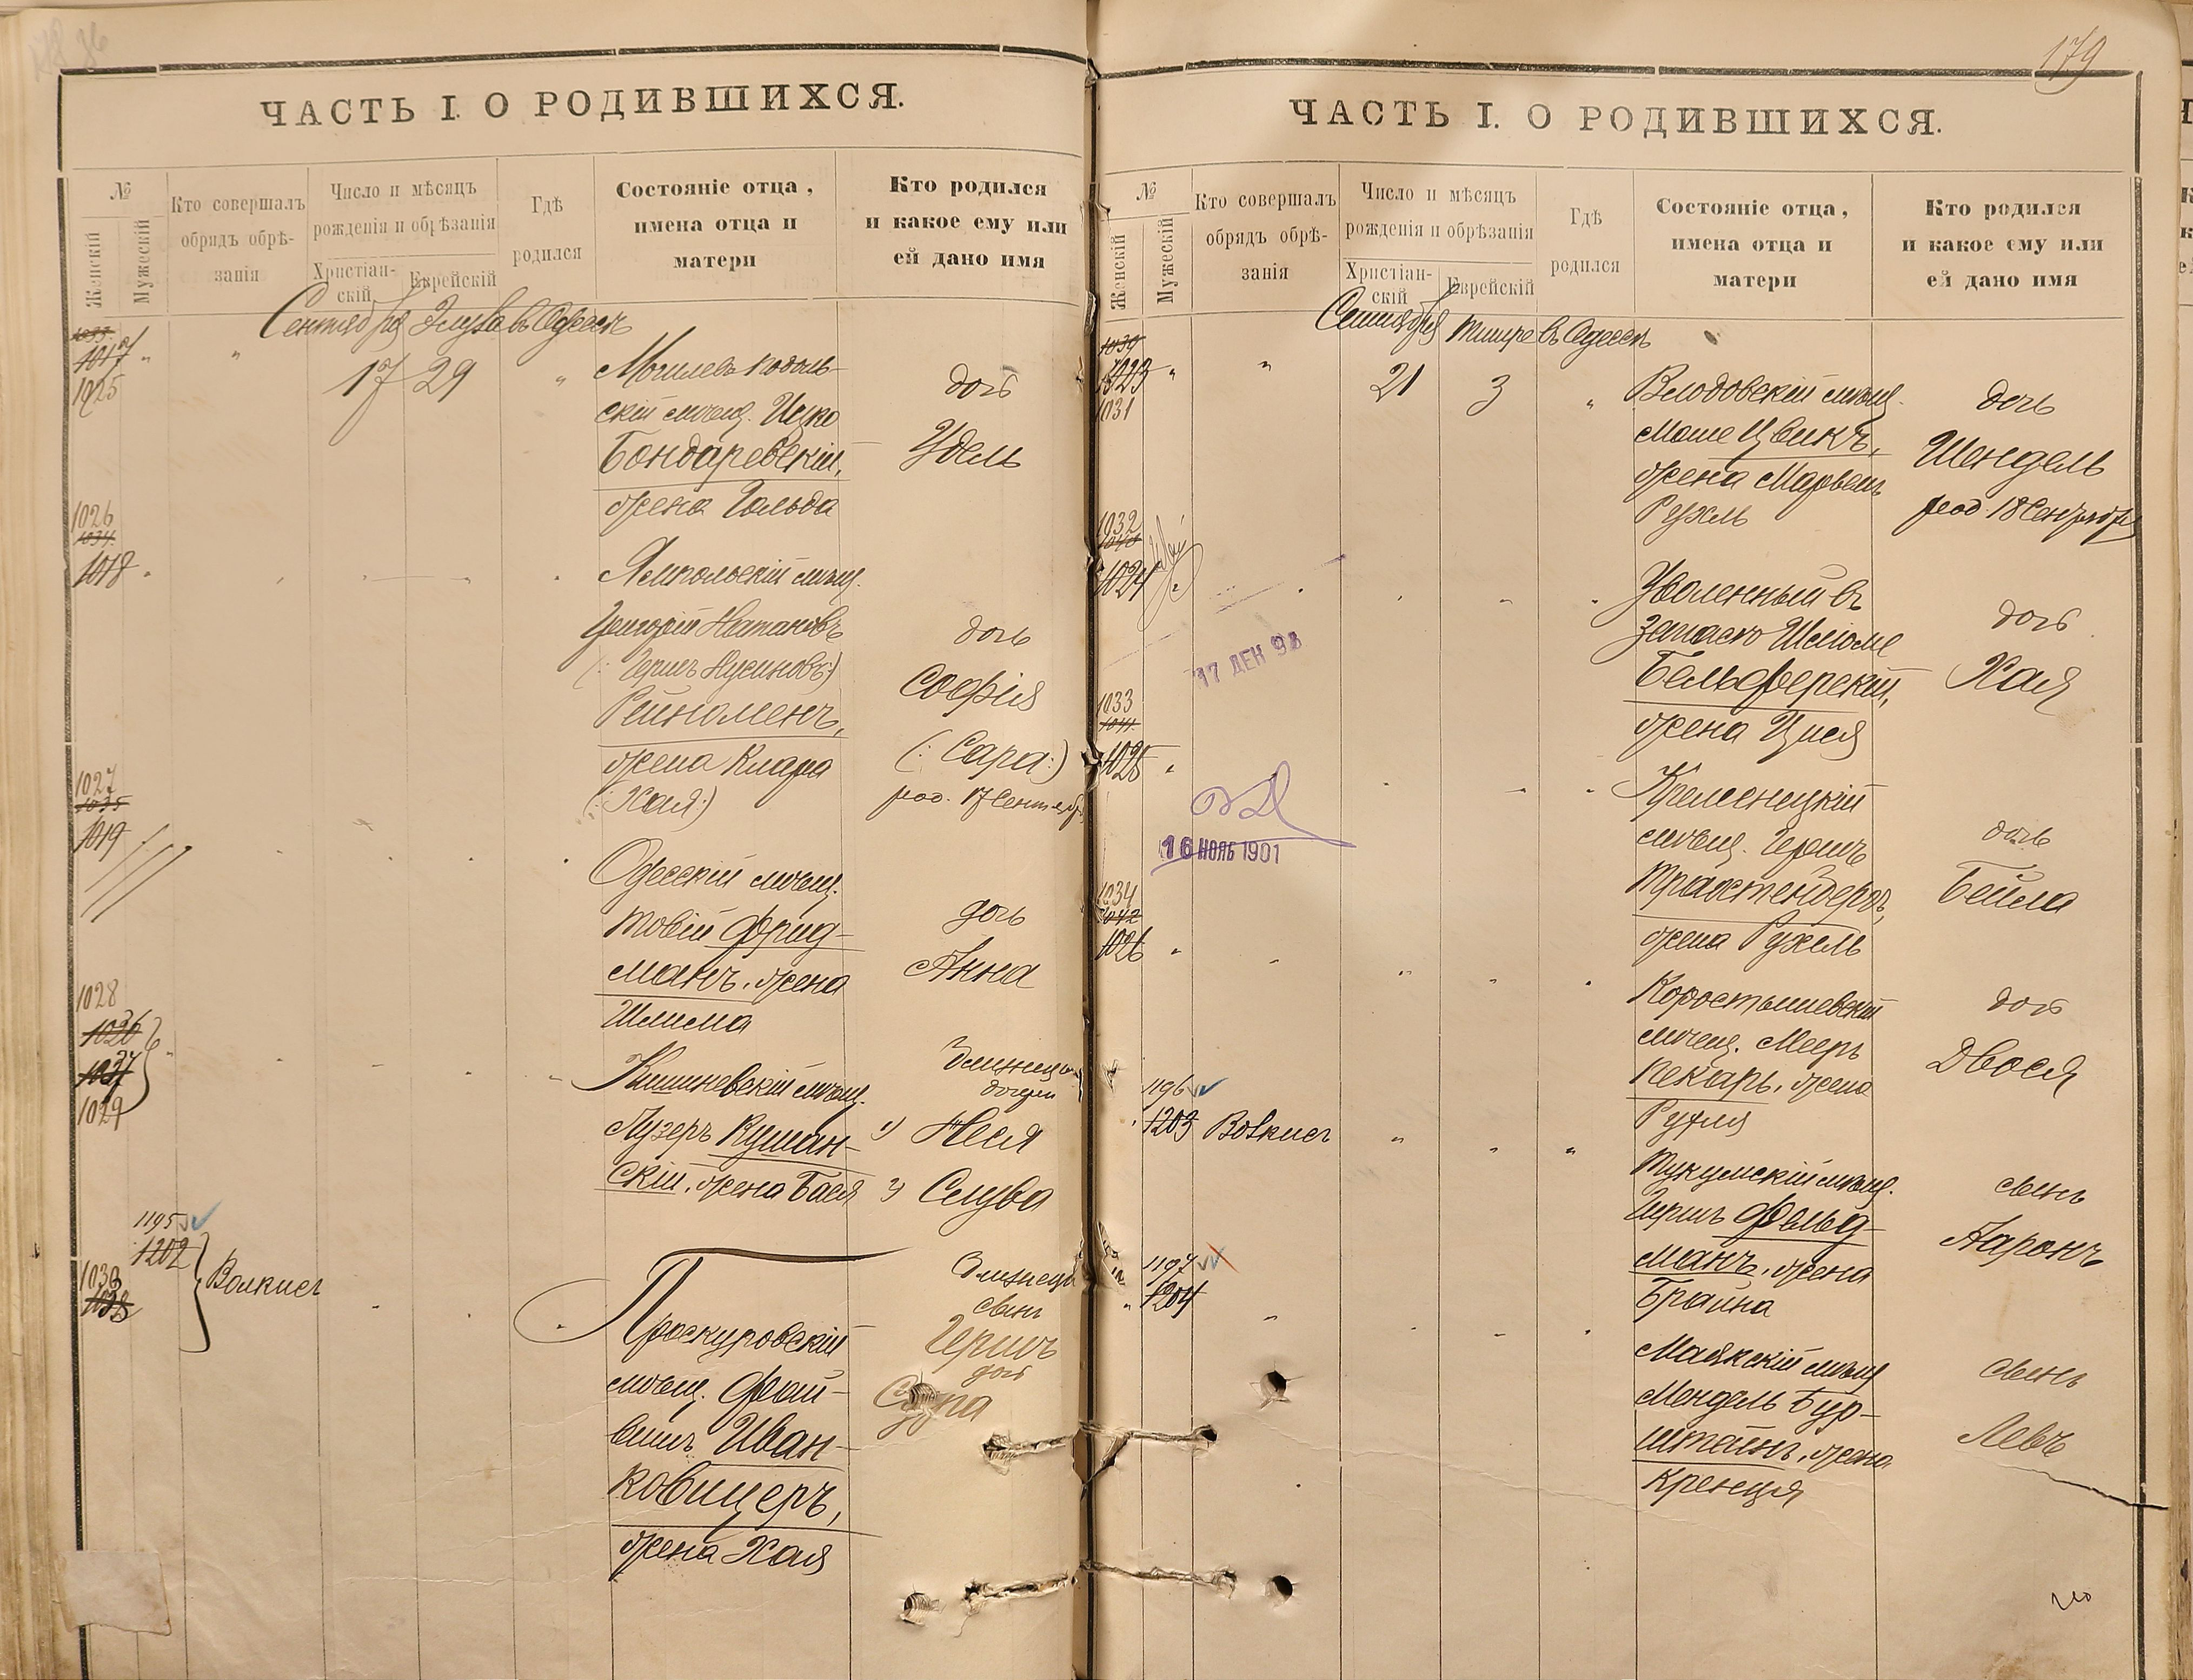 ЧАСТЬ I. О РОДИВШИХСЯ.
№
Женскій
Мужескій
Кто совершалъ
обрядъ обрѣ-
занія
Число и мѣсяцъ
рожденія и обрѣзанія
Христіан-
скій
Еврейскій
Гдѣ
родился
Состояніе отца,
имена отца и
матери
Кто родился
и какое ему или
ей дано имя
Сентября Элула въ Одессѣ
1017
1025
17 29
Могилева Подоль-
скій мѣщ. Ицко
Бондаревскій,
жена Гольда
дочь
Удель
1026
1034
1018
Ямпольскій мѣщ.
Григорій Натановъ
(: Гершъ Нусиновъ :)
Рейноменъ,
жена Клара
(: Хая :)
дочь
Софія
(: Сара :)
род. 17 Сентября
1027
1035
1019
Одесскій мѣщ.
Товій Фрид-
манъ, жена
Шлима
дочь
Анна
1028
1036
1037
1029
Кишиневскій мѣщ.
Лузеръ Кушан-
скій, жена Бася
Близнецы
дочери
1) Неся
2) Слува
1195
1202
1030
1038
Волкисъ
Проскуровскій
мѣщ. Фай-
вишъ Иван-
ковицеръ,
жена Хая
Близнецы
сынъ
Гершъ
дочь
179
ЧАСТЬ I. О РОДИВШИХСЯ.
№
Женскій
Мужескій
Кто совершалъ
обрядъ обрѣ-
занія
Число и мѣсяцъ
рожденія и обрѣзанія
Христіан-
скій
Еврейскій
Гдѣ
родился
Состояніе отца,
имена отца и
матери
Кто родился
и какое ему или
ей дано имя
Сентября Тишре въ Одессѣ
1039
1023
1031
21 3
Влодовскій мѣщ.
Моше Цвикъ,
жена Марьемъ
Рухль
дочь
Шендель
род. 18 Сентября
1032
1040
1024
17 ДЕК 98
Уволенный въ
запасъ Шломе
Бельферскій,
жена Цися
дочь
Хая
1033
1041
1025
16 НОЯБ 1901
Кременецкій
мѣщ. Гершъ
Трахтенбергъ,
жена Рухель
дочь
Бейла
1034
1042
1026
Коростышевскій
мѣщ. Мееръ
Пекарь, жена
Рухля
дочь
Двося
1196
1203 Волкисъ
Тукумскій мѣщ.
Гершъ Фельд-
манъ, жена
Брайна
сынъ
Ааронъ
1197
1204
Маякскій мѣщ
Мендель Бур-
штейнъ, жена
Кренця
сынъ
Левъ